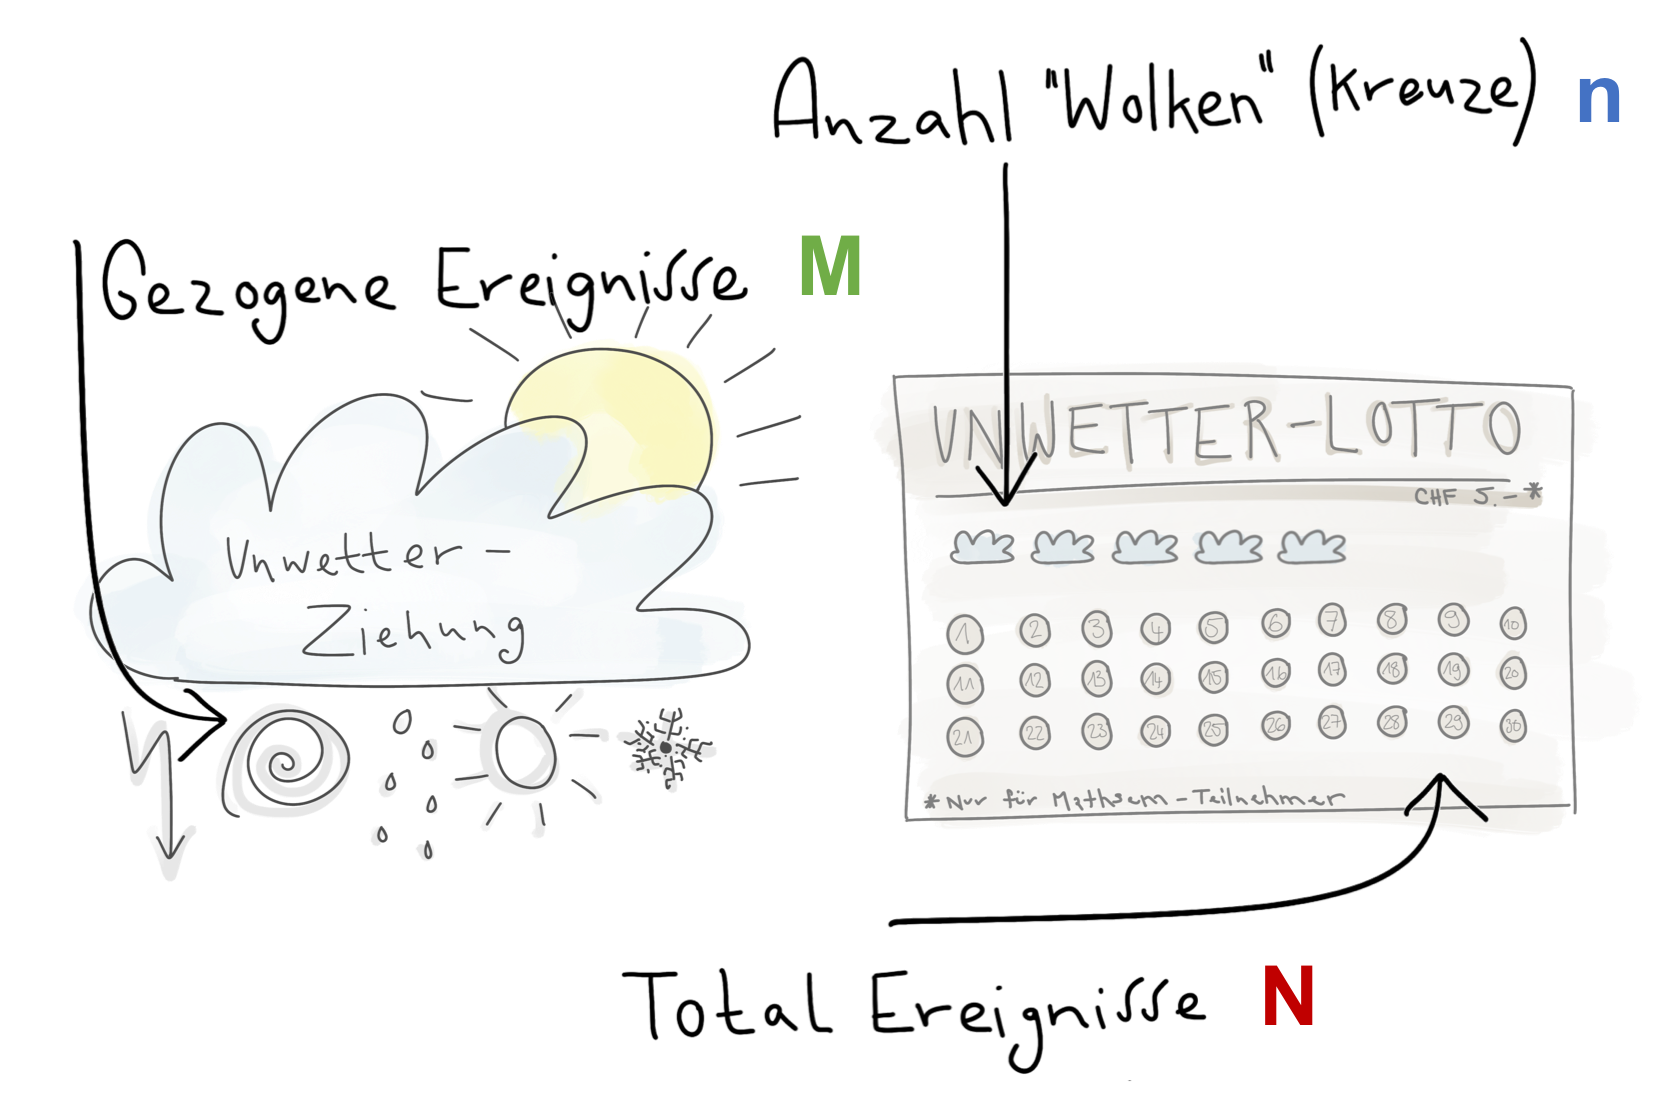 Anzahl "Wolken" (Kreuze) n
Gezogene Ereignisse M
UNWETTER-LOTTO
CHF 5.-*
Unwetter-
Ziehung
1 2 3 4 5 6 7 8 9 10
11 12 13 14 15 16 17 18 19 20
21 22 23 24 25 26 27 28 29 30
*Nur für Mathsem-Teilnehmer
Total Ereignisse N